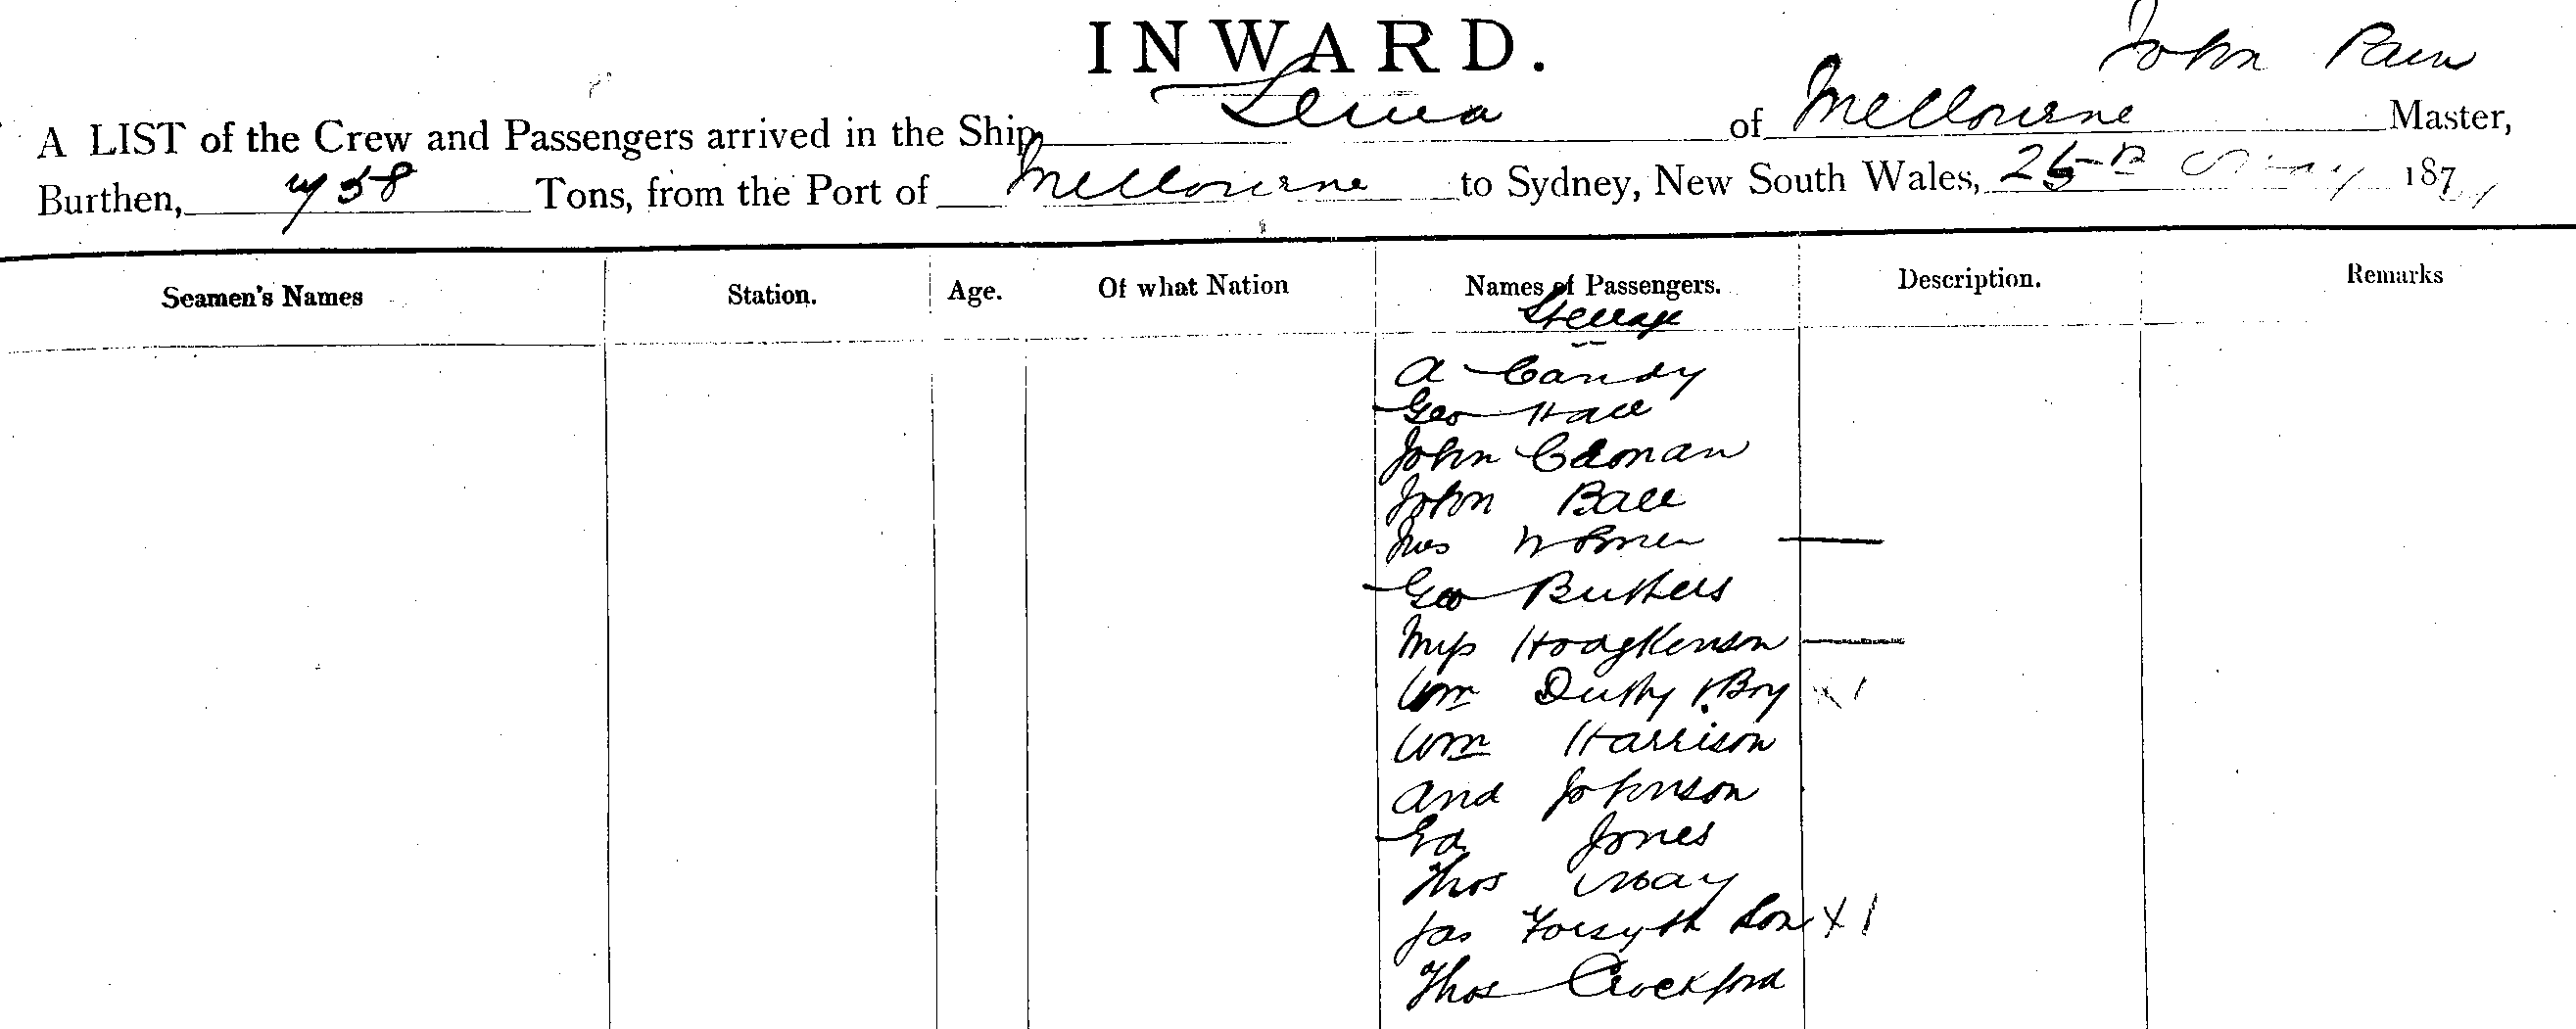 INWARD.
John Pain
A LIST of the Crew and Passengers arrived in the Ship of Melbourne Master,
Burthen, 758 Tons, from the Port of Melbourne to Sydney, New South Wales, 25th May 187
Seamen's Names Station. Age. Of what Nation Names of Passengers. Description. Remarks
Steerage
A Candy
Geo Hall
John
John Ball
Mrs
Geo
Miss Hodgkenson —
Wm Duffy & Boy x 1
Wm Harrison
And Johnson
Ed Jones
Thos May
Jas Forsyth Son x 1
Thos Crockford